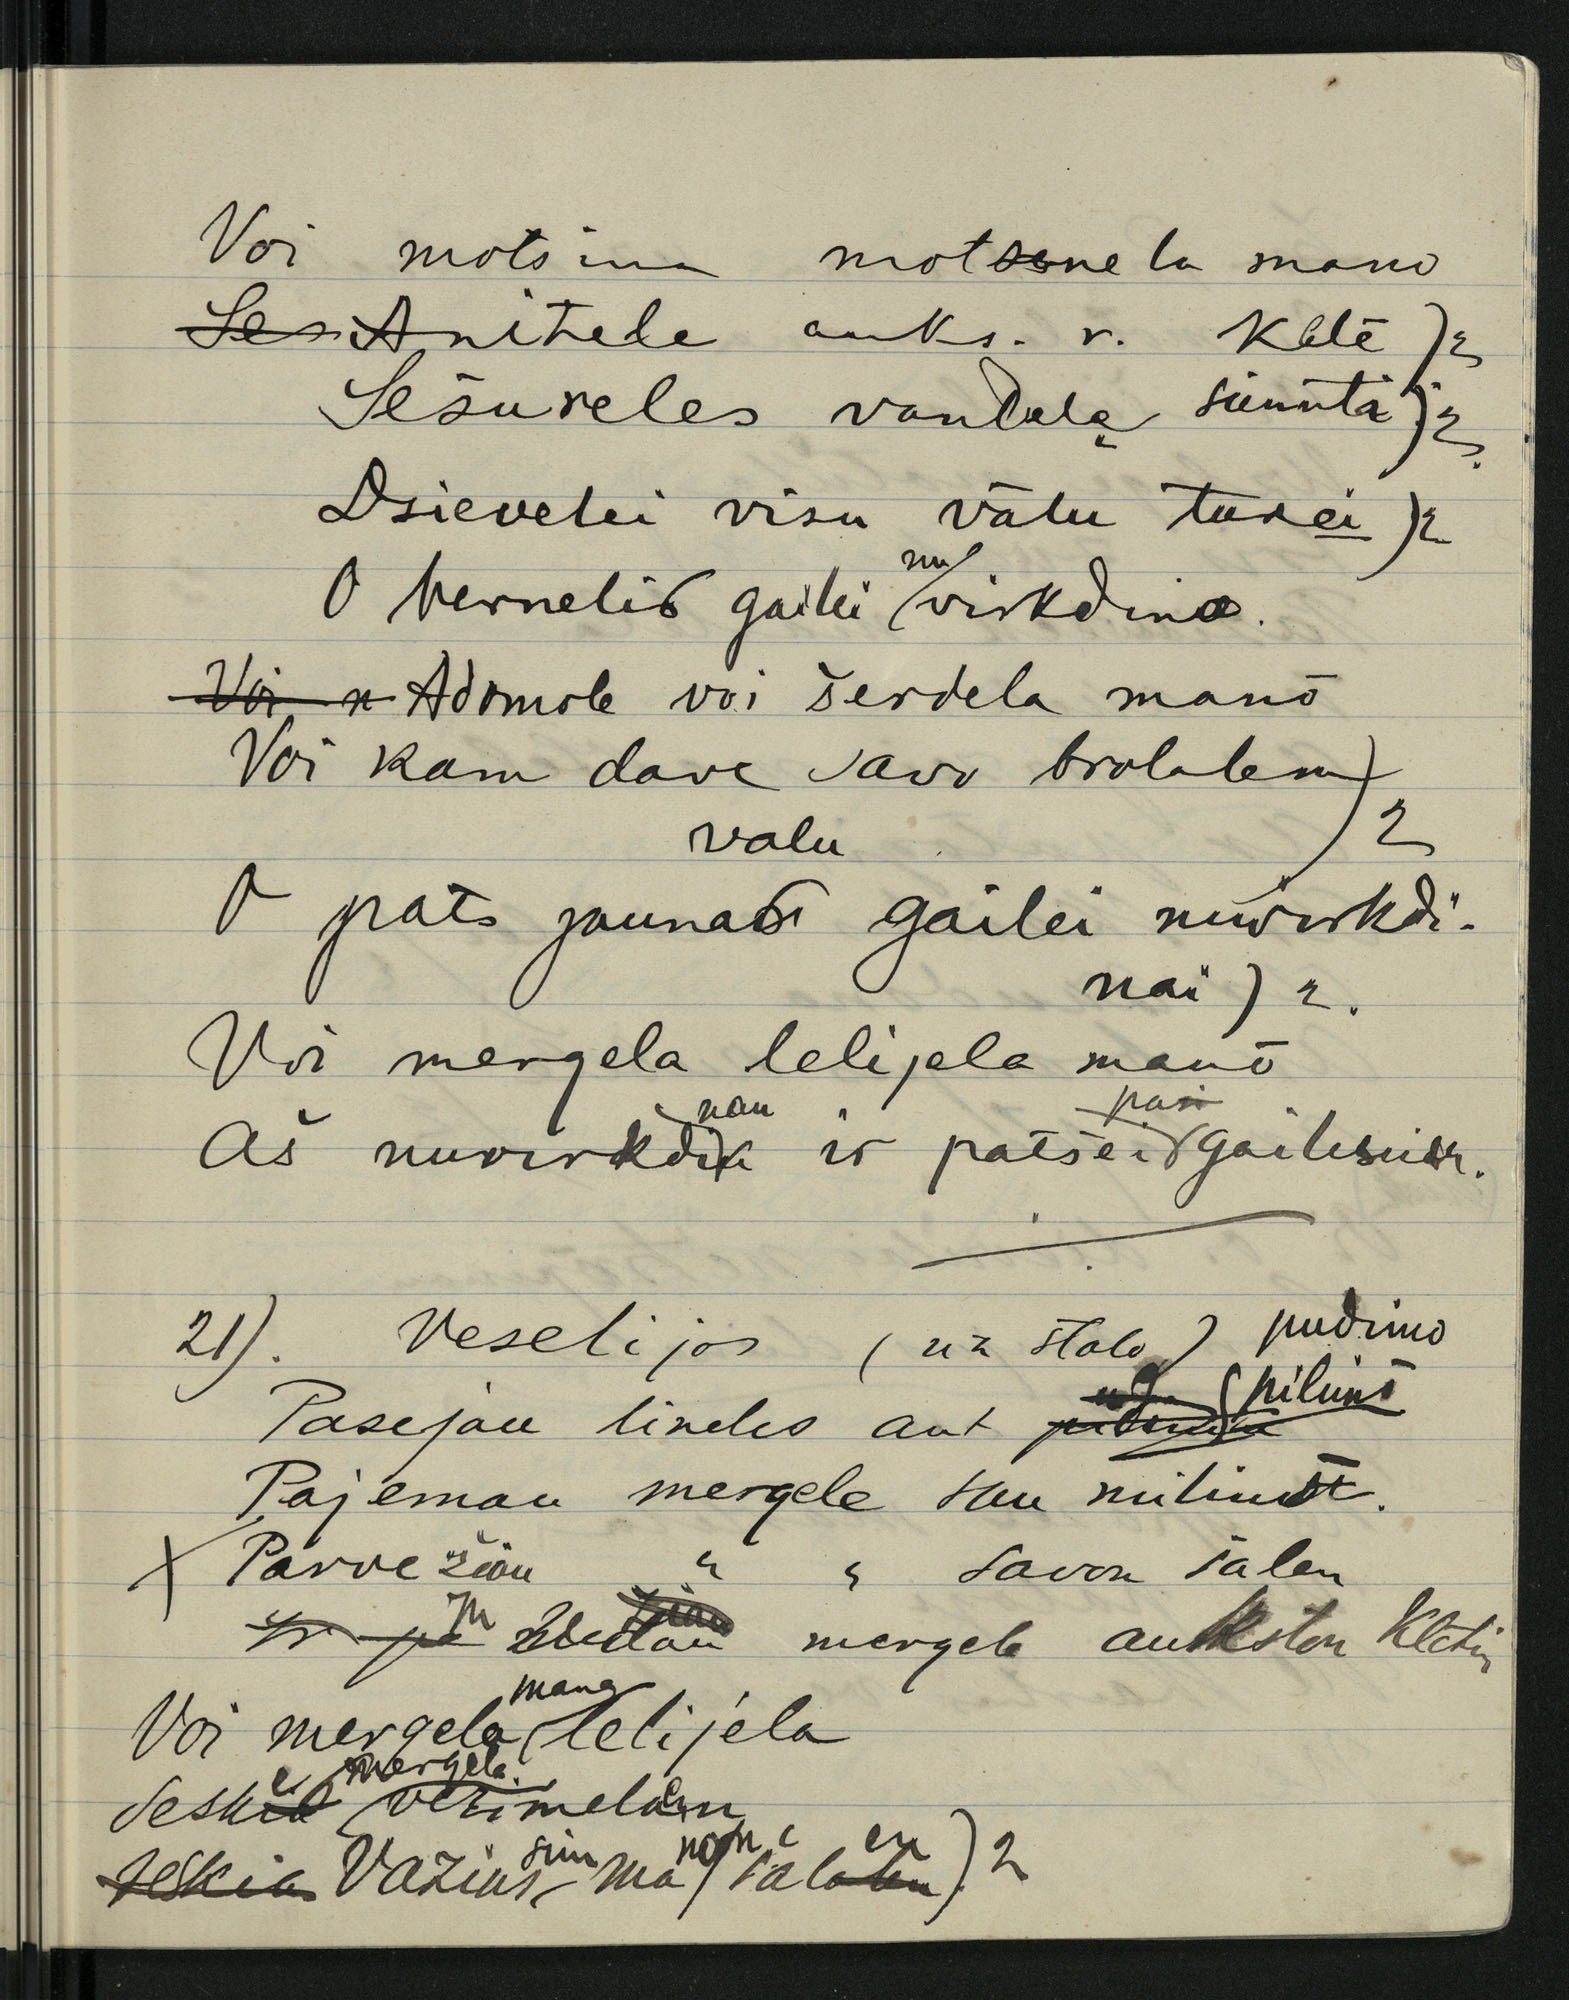 Voi motsina motsenela mano
Anitele auks. r. kletē ) 2
Sešureles vandelą siuntā ) 2.
Dsievelei visu vālu turei ) 2
O bernelis gailei nuvirkdino.
Adomole voi šerdela manō
Voi kam dave savo brolalem ) 2
valu
O pats jaunas gailei nuvirkdi-
nai ) 2.
Voi mergela lelijela manō
Aš nuvirkdinau ir patšei
21). Veselijos (už stalo) pudimo
Pasejau lineles ant pilimō
Pajemau mergele sau
X Parvežiau " " savon šalen
mergele aukston kletin
Voi mergela mana lelijela
Seske mergela vežimelen
Važiusim manon šalen ) 2